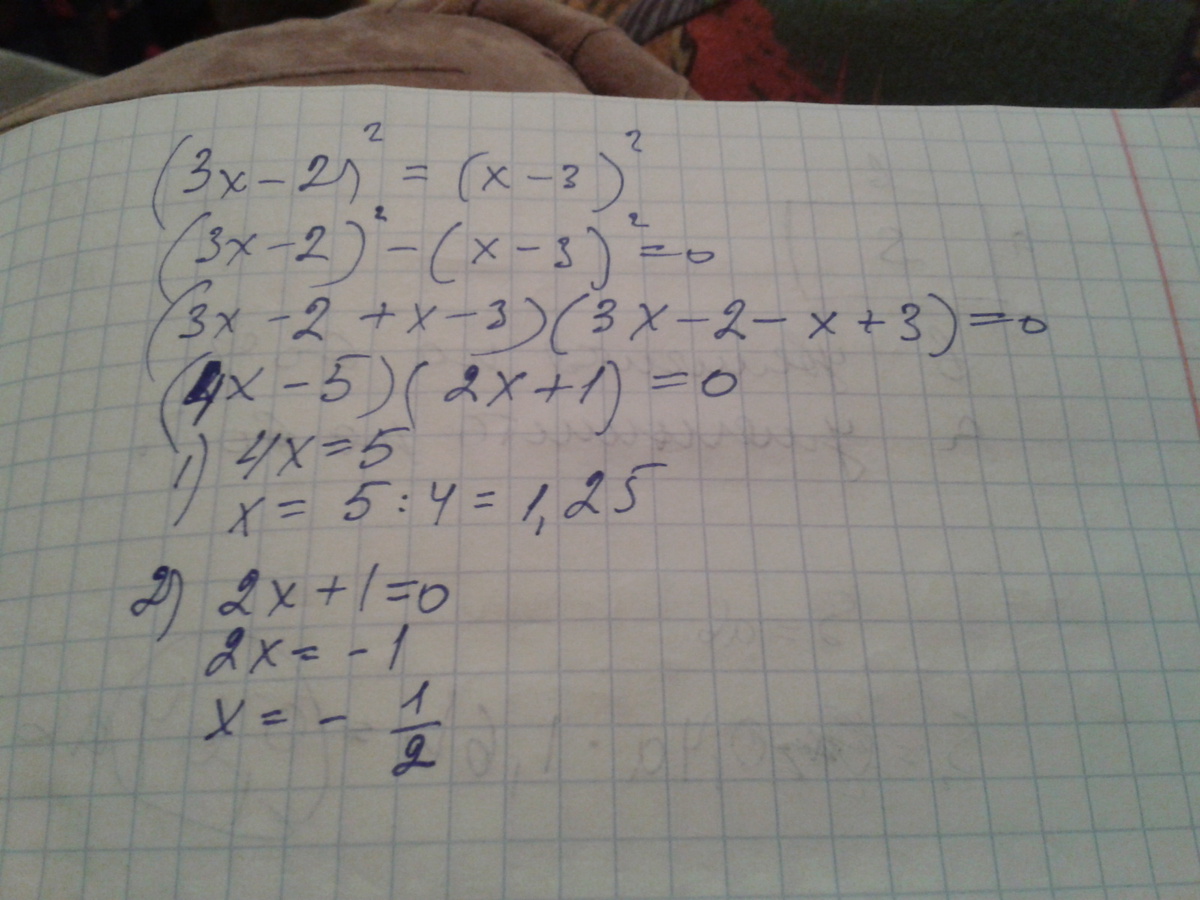 (3x-2)² = (x-3)²
(3x-2)² - (x-3)² = 0
(3x-2+x-3)(3x-2-x+3)=0
(4x-5)(2x+1)=0
1) 4x=5
x = 5:4 = 1,25
2) 2x+1=0
2x = -1
x = - 1/2